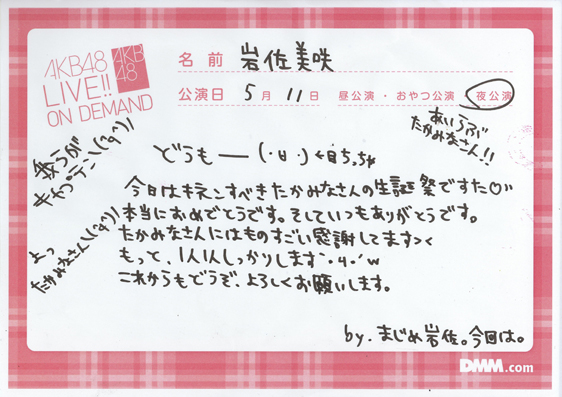 AKB48
LIVE!!
ON DEMAND
AKB
48
名前 岩佐美咲
公演日 5月11日 昼公演・おやつ公演 夜公演
あいらぶ
たかみなさん!!
我らが
キャプテン\(^q^)/
よっ
たかみなさん\(^q^)/
どうもー(・ㅂ・)
今日はキネンすべきたかみなさんの生誕祭ですた♡
本当におめでとうです。そしていつもありがとうです。
たかみなさんにはものすごい感謝してます><
もっと、1人1人しっかりします`・ㅂ・´w
これからもどうぞ、よろしくお願いします。
by. まじめ岩佐。今回は。
DMM.com